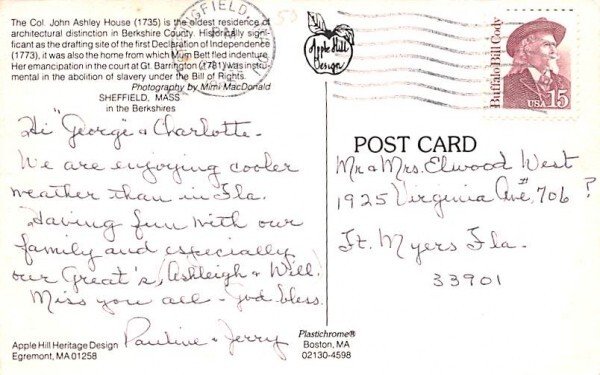 The Col. John Ashley House (1735) is the oldest residence of
architectural distinction in Berkshire County. Historically signi-
ficant as the drafting site of the first Declaration of Independence
(1773), it was also the home from which Mum Bett fled indenture.
Her emancipation in the court at Gt. Barrington (1781) was instru-
mental in the abolition of slavery under the Bill of Rights.
Photography by Mimi MacDonald
SHEFFIELD, MASS
in the Berkshires
SHEFFIELD
Apple Hill
Design
Buffalo Bill Cody
USA 15
Hi "George" & Charlotte -
We are enjoying cooler
weather than in Fla.
Having fun with our
family and especially
our Great's, (Ashleigh & Will!)
Miss you all - God bless.
Pauline & Jerry
POST CARD
Mr & Mrs. Elwood West
1925 Virginia Ave. #706 ?
Ft. Myers Fla.
33901
Apple Hill Heritage Design
Egremont, MA 01258
Plastichrome®
Boston, MA
02130-4598